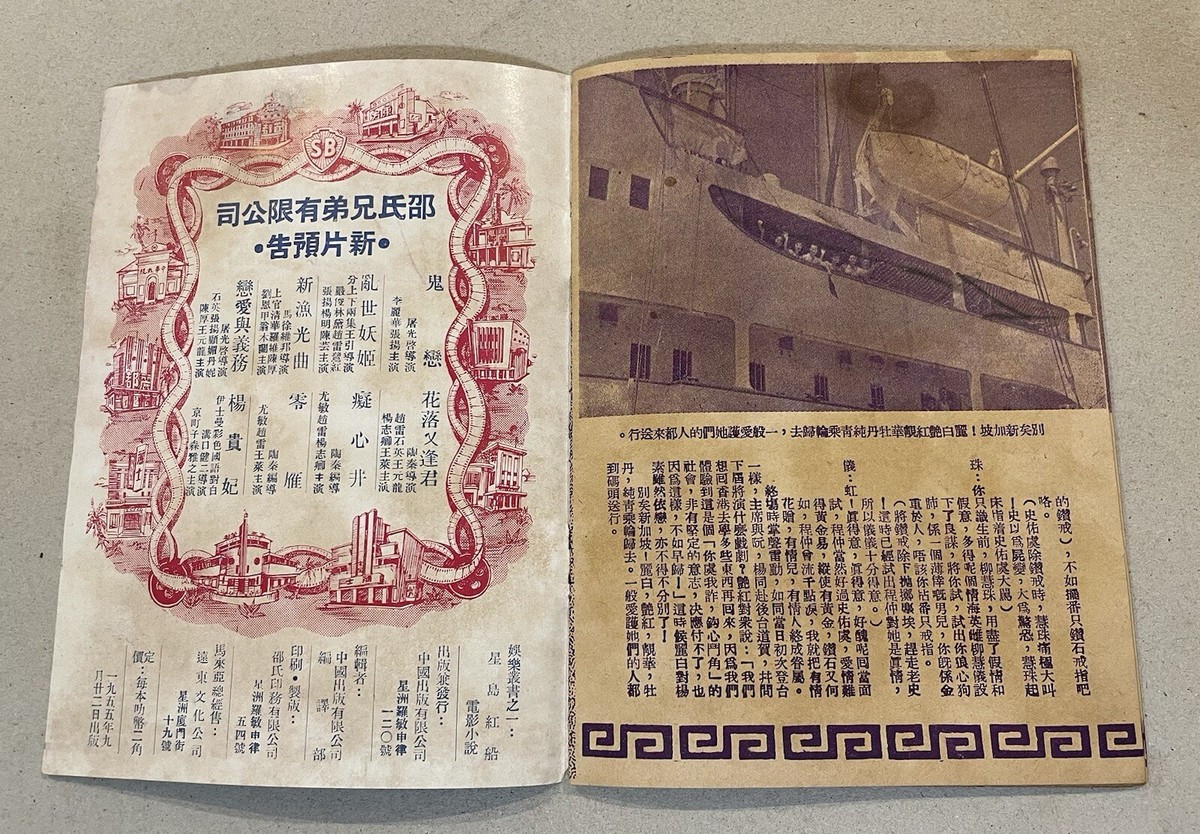 別矣新加坡！麗白艷紅靚華牡丹純靑乘輪歸去，一般愛護她們的人都來送行。
的鑽戒），不如擲番只鑽石戒指吧
咯。
（史佑處除鑽戒時，慧珠痛極大叫
—史以爲屍變，大爲驚恐，慧珠起
床指着史佑處大罵）
珠：你只識生前，柳慧珠，用盡了假情和
假意，多得呢個情海英雌柳慧儀設
下了良謀，將你試，試出你狼心狗
肺，係一個薄倖嘅男兒，你旣係金
重於人，唔該你拈番只戒指。
（將鑽戒除下拋擲嚟埃，趕走老史
—這時已經試出程仲對她是眞情，
所以儀儀十分得意。）
儀：紅！眞得意，眞得意，好醜呢囘當面
試，程仲當然好過史佑處，愛情難
得黃金易，縱使有黃金，鑽石又何
如，程仲曾流千點淚，我就把有情
花贈，有情兒，有情人終成眷屬。
終塲時掌聲雷動，如同當日初次登台
一樣，主席與阮，楊同赴後台道賀，幷問
下屆將演什麽戲劇？艷紅對衆說：「我們
想囘香港去學多些東西再囘來，因爲我們
體驗到這是個「你處我詐，鈎心鬥角」的
社會，非有堅定的意志，決應付不了，也
因爲這樣，不如早歸！」這時候麗白對楊
素雖然依戀，亦不得不分別了！
別矣新加坡！麗白，艷紅，靚華，牡
丹，純靑乘輪歸去。一般愛護她們的人都
到碼頭送行。
SB
邵氏兄弟有限公司
•新片預告•
鬼戀
屠光啓導演
李麗華張揚主演
亂世妖姬
分上下兩集王引導演
嚴俊林黛趙雷葛紅
張揚楊明陳芸主演
新漁光曲
馬徐維邦導演
上官清華羅維陳厚
劉恩甲翁木蘭主演
戀愛與義務
屠光啓導演
石英張揚顧媚丹妮
陳厚王元龍主演
花落又逢君
陶秦導演
趙雷石英王元龍
楊志卿王萊主演
癡心井
陶秦編導
尤敏趙雷楊志卿主演
零雁
陶秦編導
尤敏趙雷王萊主演
楊貴妃
伊士曼彩色國語對白
溝口健二導演
京町子森雅之主演
娛樂叢書之一：
星島紅船
電影小說
出版兼發行：
中國出版有限公司
星洲羅敏申律
一二〇號
編輯者：
中國出版有限公司
編譯部
印刷•製版：
邵氏印務有限公司
星洲羅敏申律
五四號
馬來亞總經售：
遠東文化公司
星洲廈門街
十九號
定價：每本叻幣二角
一九五五年九
月廿二日出版